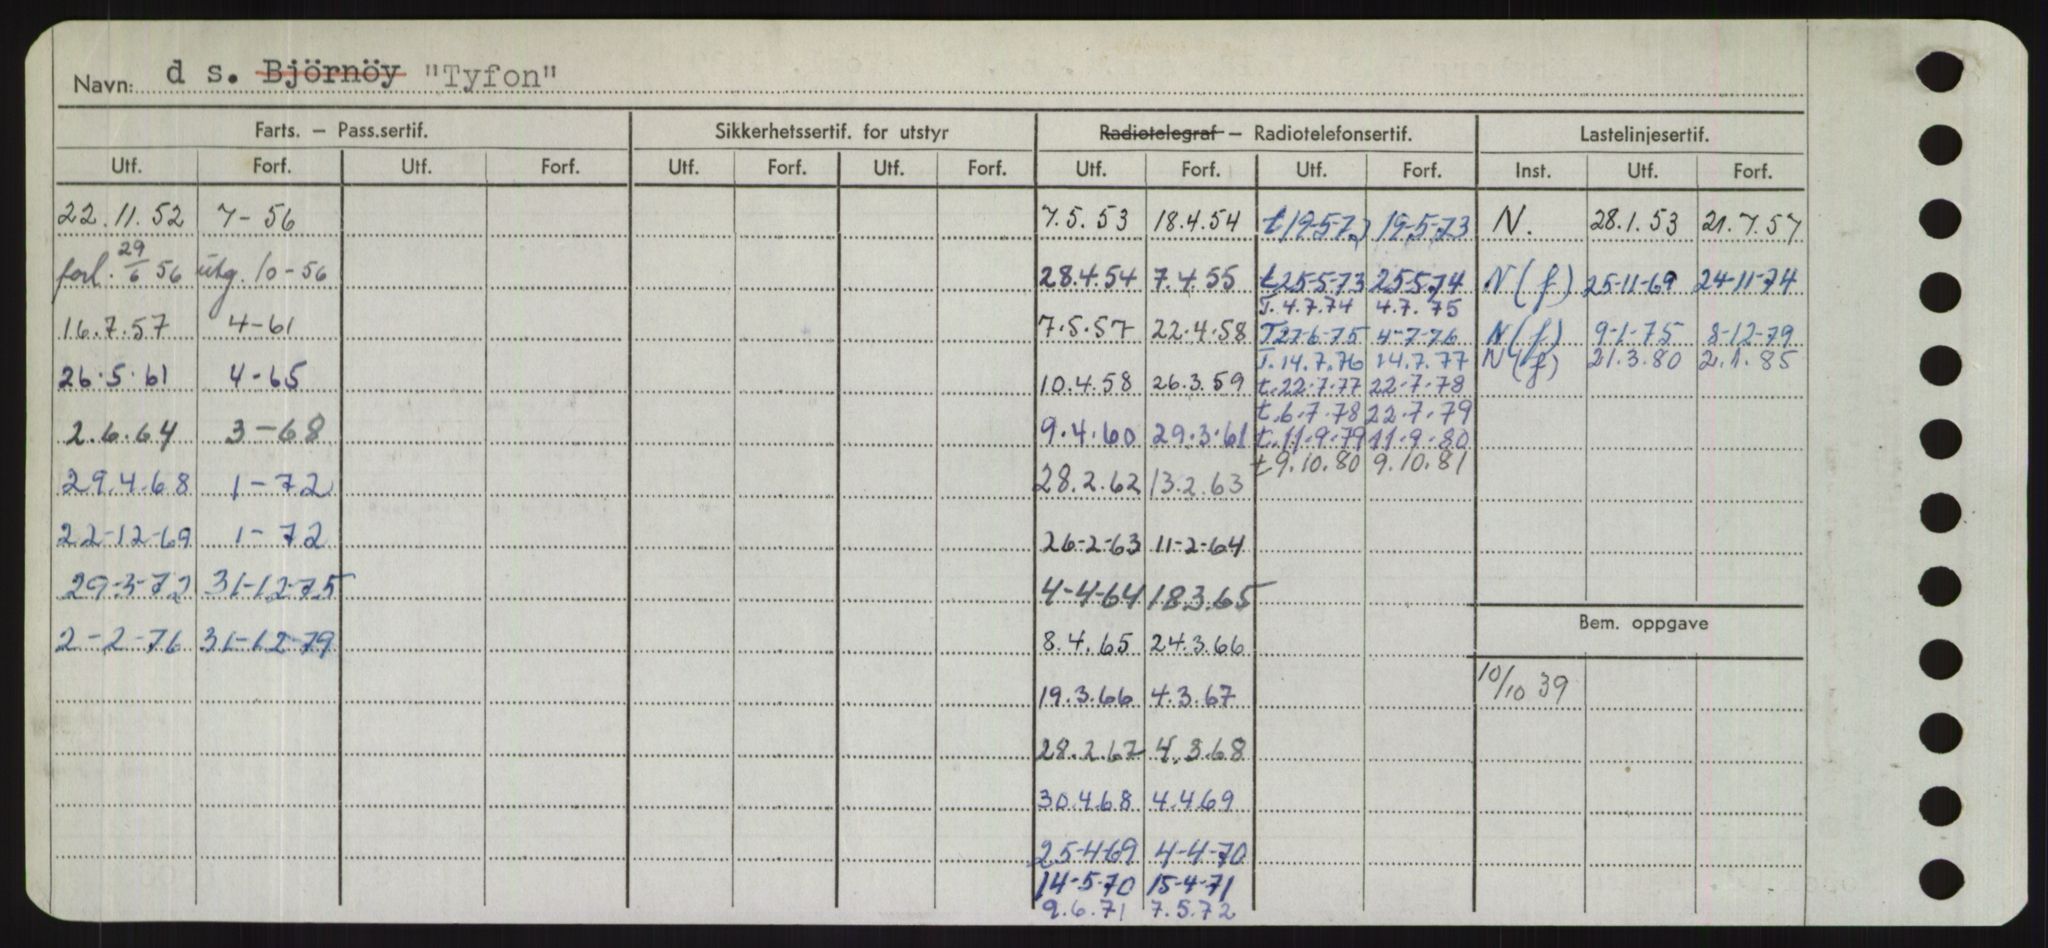 Navn: d s. Björnöy "Tyfon"
Farts. – Pass.sertif. Sikkerhetssertif. for utstyr Radiotelegraf – Radiotelefonsertif. Lastelinjesertif.
Utf. Forf. Utf. Forf. Utf. Forf. Utf. Forf. Utf. Forf. Utf. Forf. Inst. Utf. Forf.
22.11.52 7-56 7.5.53 18.4.54 t 19-5-72 19-5-73 N. 28.1.53 21.7.57
forl. 29/6 56 utg. 10-56 28.4.54 7.4.55 t 25-5-73 25.5.74 N(f) 25-11-69 24-11-74
T. 4.7.74 4.7.75
16.7.57 4-61 7.5.57 22.4.58 T 27-6-75 4-7-76 N(f) 9-1-75 8-12-79
T. 14.7.76 14.7.77 N(f) 21.3.80 2.1.85
26.5.61 4-65 10.4.58 26.3.59 t. 22-7-77 22-7-78
t. 6.7.78 22.7.79
2.6.64 3-68 9.4.60 29.3.61 t. 11-9-79 11-9-80
29.4.68 1-72 28.2.62 13.2.63 t 9.10.80 9.10.81
22-12-69 1-72 26-2-63 11-2-64
29-3-72 31-12-75 4-4-64 18.3.65
Bem. oppgave
2-2-76 31-12-79 8.4.65 24.3.66
19.3.66 4.3.67 10/10 39
28.2.67 4.3.68
30.4.68 4.4.69
25-4-69 4-4-70
14-5-70 15-4-71
9.6.71 7.5.72